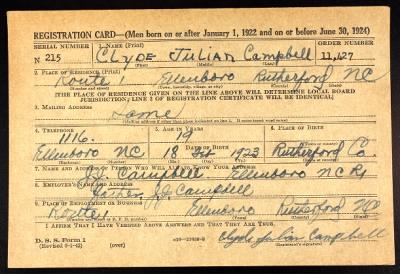 REGISTRATION CARD—(Men born on or after January 1, 1922 and on or before June 30, 1924)
SERIAL NUMBER 1. NAME (Print) ORDER NUMBER
N 215 CLYDE JULIAN Campbell 11,427
(First) (Middle) (Last)
2. PLACE OF RESIDENCE (Print)
Route 1 Ellenboro Rutherford NC
(Number and street) (Town, township, village, or city) (County) (State)
[THE PLACE OF RESIDENCE GIVEN ON THE LINE ABOVE WILL DETERMINE LOCAL BOARD
JURISDICTION; LINE 2 OF REGISTRATION CERTIFICATE WILL BE IDENTICAL]
3. MAILING ADDRESS
Same
[Mailing address if other than place indicated on line 2. If same insert word same]
4. TELEPHONE 5. AGE IN YEARS 6. PLACE OF BIRTH
1116. 19
Ellenboro NC 18 1923 Rutherford Co.
7. NAME AND ADDRESS OF PERSON WHO WILL ALWAYS KNOW YOUR ADDRESS
J.J. Campbell Ellenboro NC R1
8. EMPLOYER'S NAME AND ADDRESS
Father, J.J. Campbell
9. PLACE OF EMPLOYMENT OR BUSINESS
Route 1 Ellenboro Rutherford NC
(Number and street or R. F. D. number) (Town) (County) (State)
I AFFIRM THAT I HAVE VERIFIED ABOVE ANSWERS AND THAT THEY ARE TRUE.
D. S. S. Form 1
(Revised 6-9-42) (over) Clyde Julian Campbell
(Registrant's signature)